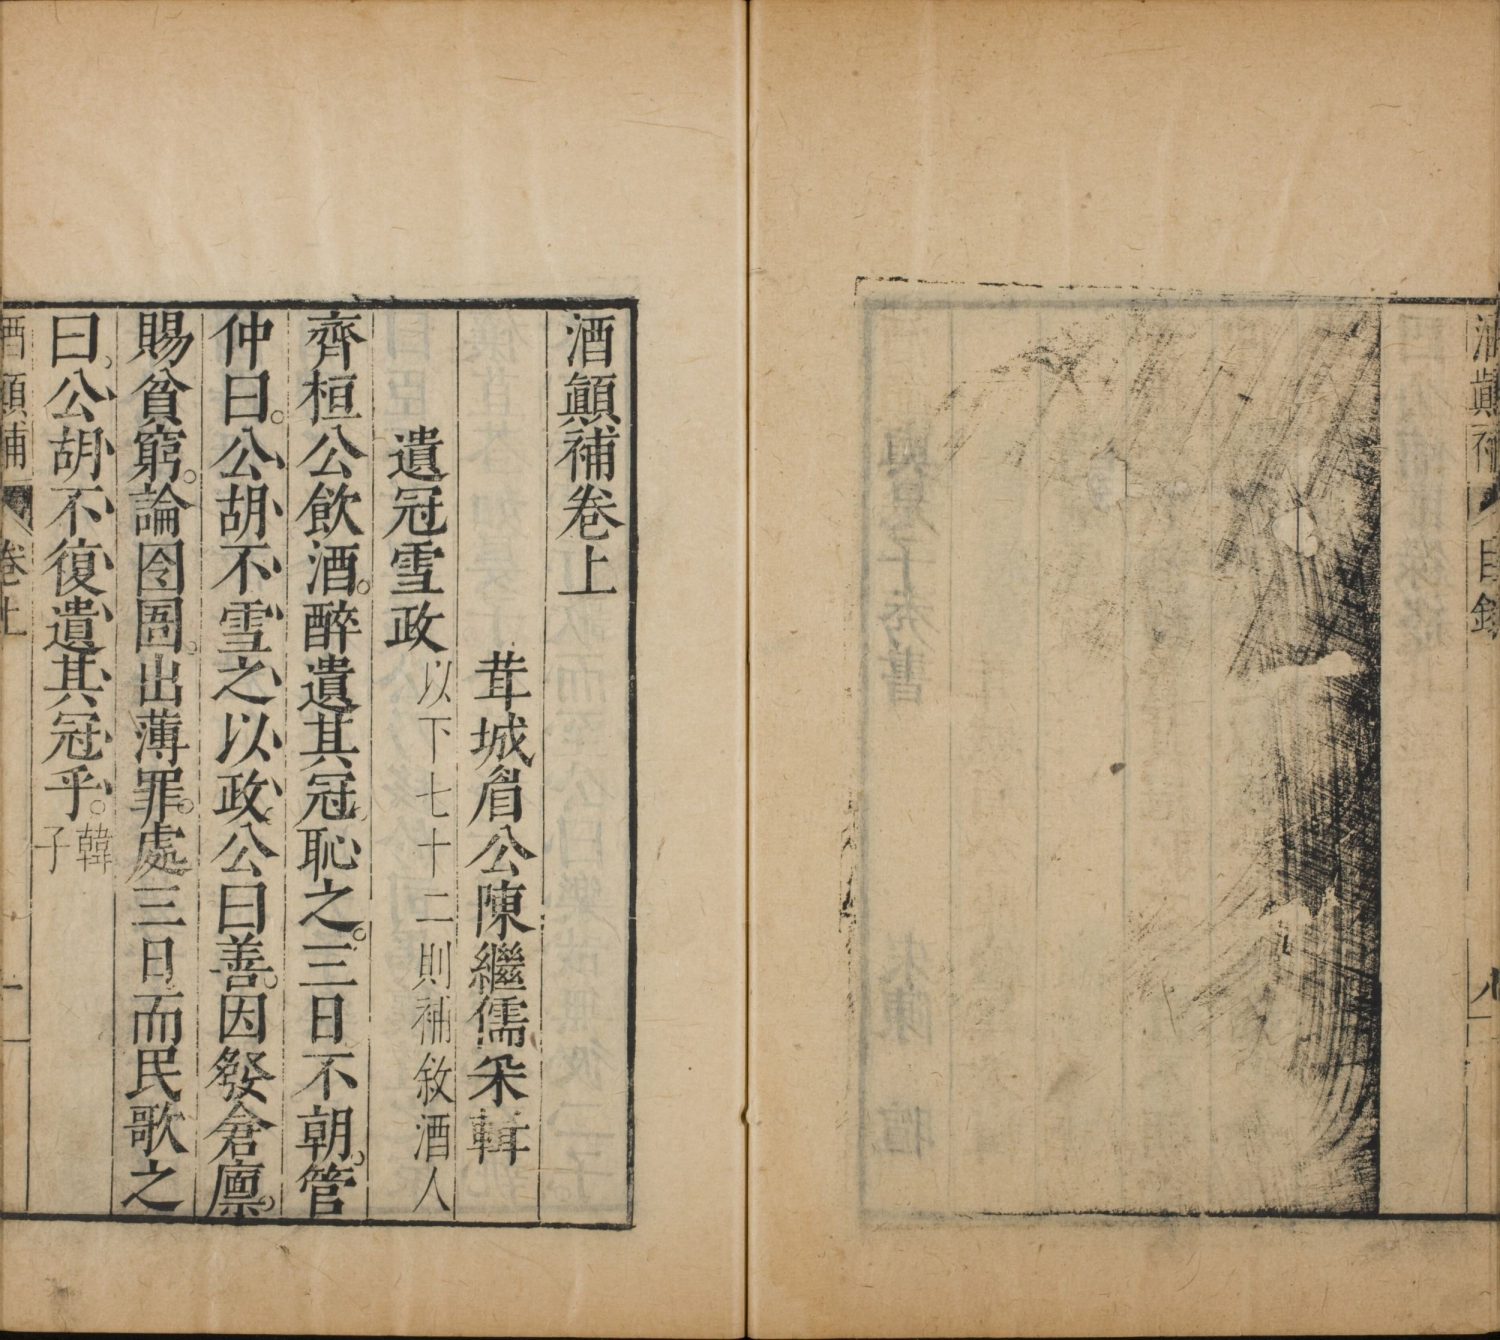 酒顛補
目錄
八
酒顛補卷上
茸城眉公陳繼儒采輯
遺冠雪政以下七十二則補敘酒人
齊桓公飲酒。醉遺其冠。恥之。三日不朝。管
仲曰。公胡不雪之以政。公曰善。因發倉廩。
賜貧窮。論囹圄。出薄罪。處三日而民歌之
曰。公胡不復遺其冠乎。韓子
酒顛補
卷上
一